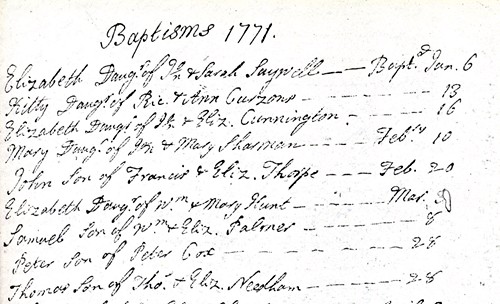 Baptisms 1771.
Elizabeth Daugr of Jn & Sarah Saywell — — Baptd Jan. 6
Kitty Daugr of Ric. & Ann Curzons — — — — 13
Elizabeth Daugr of Jn & Eliz. Cunnington — — — 16
Mary Daugr of Jn & Mary Sharman — — — Febry 10
John Son of Francis & Eliz. Thorpe — — — Feb. 20
Elizabeth Daugr of Wm & Mary Hunt — — — Mar.
Samuel Son of Wm & Eliz. Palmer — — — — 8
Peter Son of Peter Cox — — — — — 28
Thomas Son of Tho. & Eliz. Needham — — — — 28